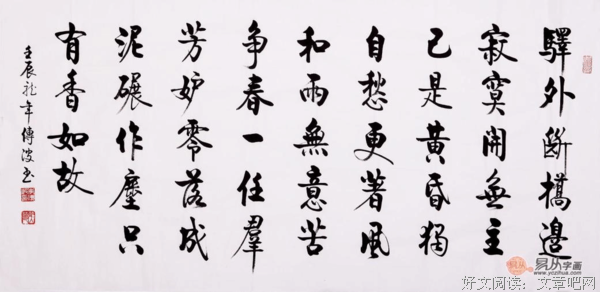 驛外斷橋邊
寂寞開無主
已是黃昏獨
自愁更著風
和雨無意苦
争春一任羣
芳妒零落成
泥碾作塵只
有香如故
壬辰龙年傅波书
易从字画
好文阅读：文章吧网